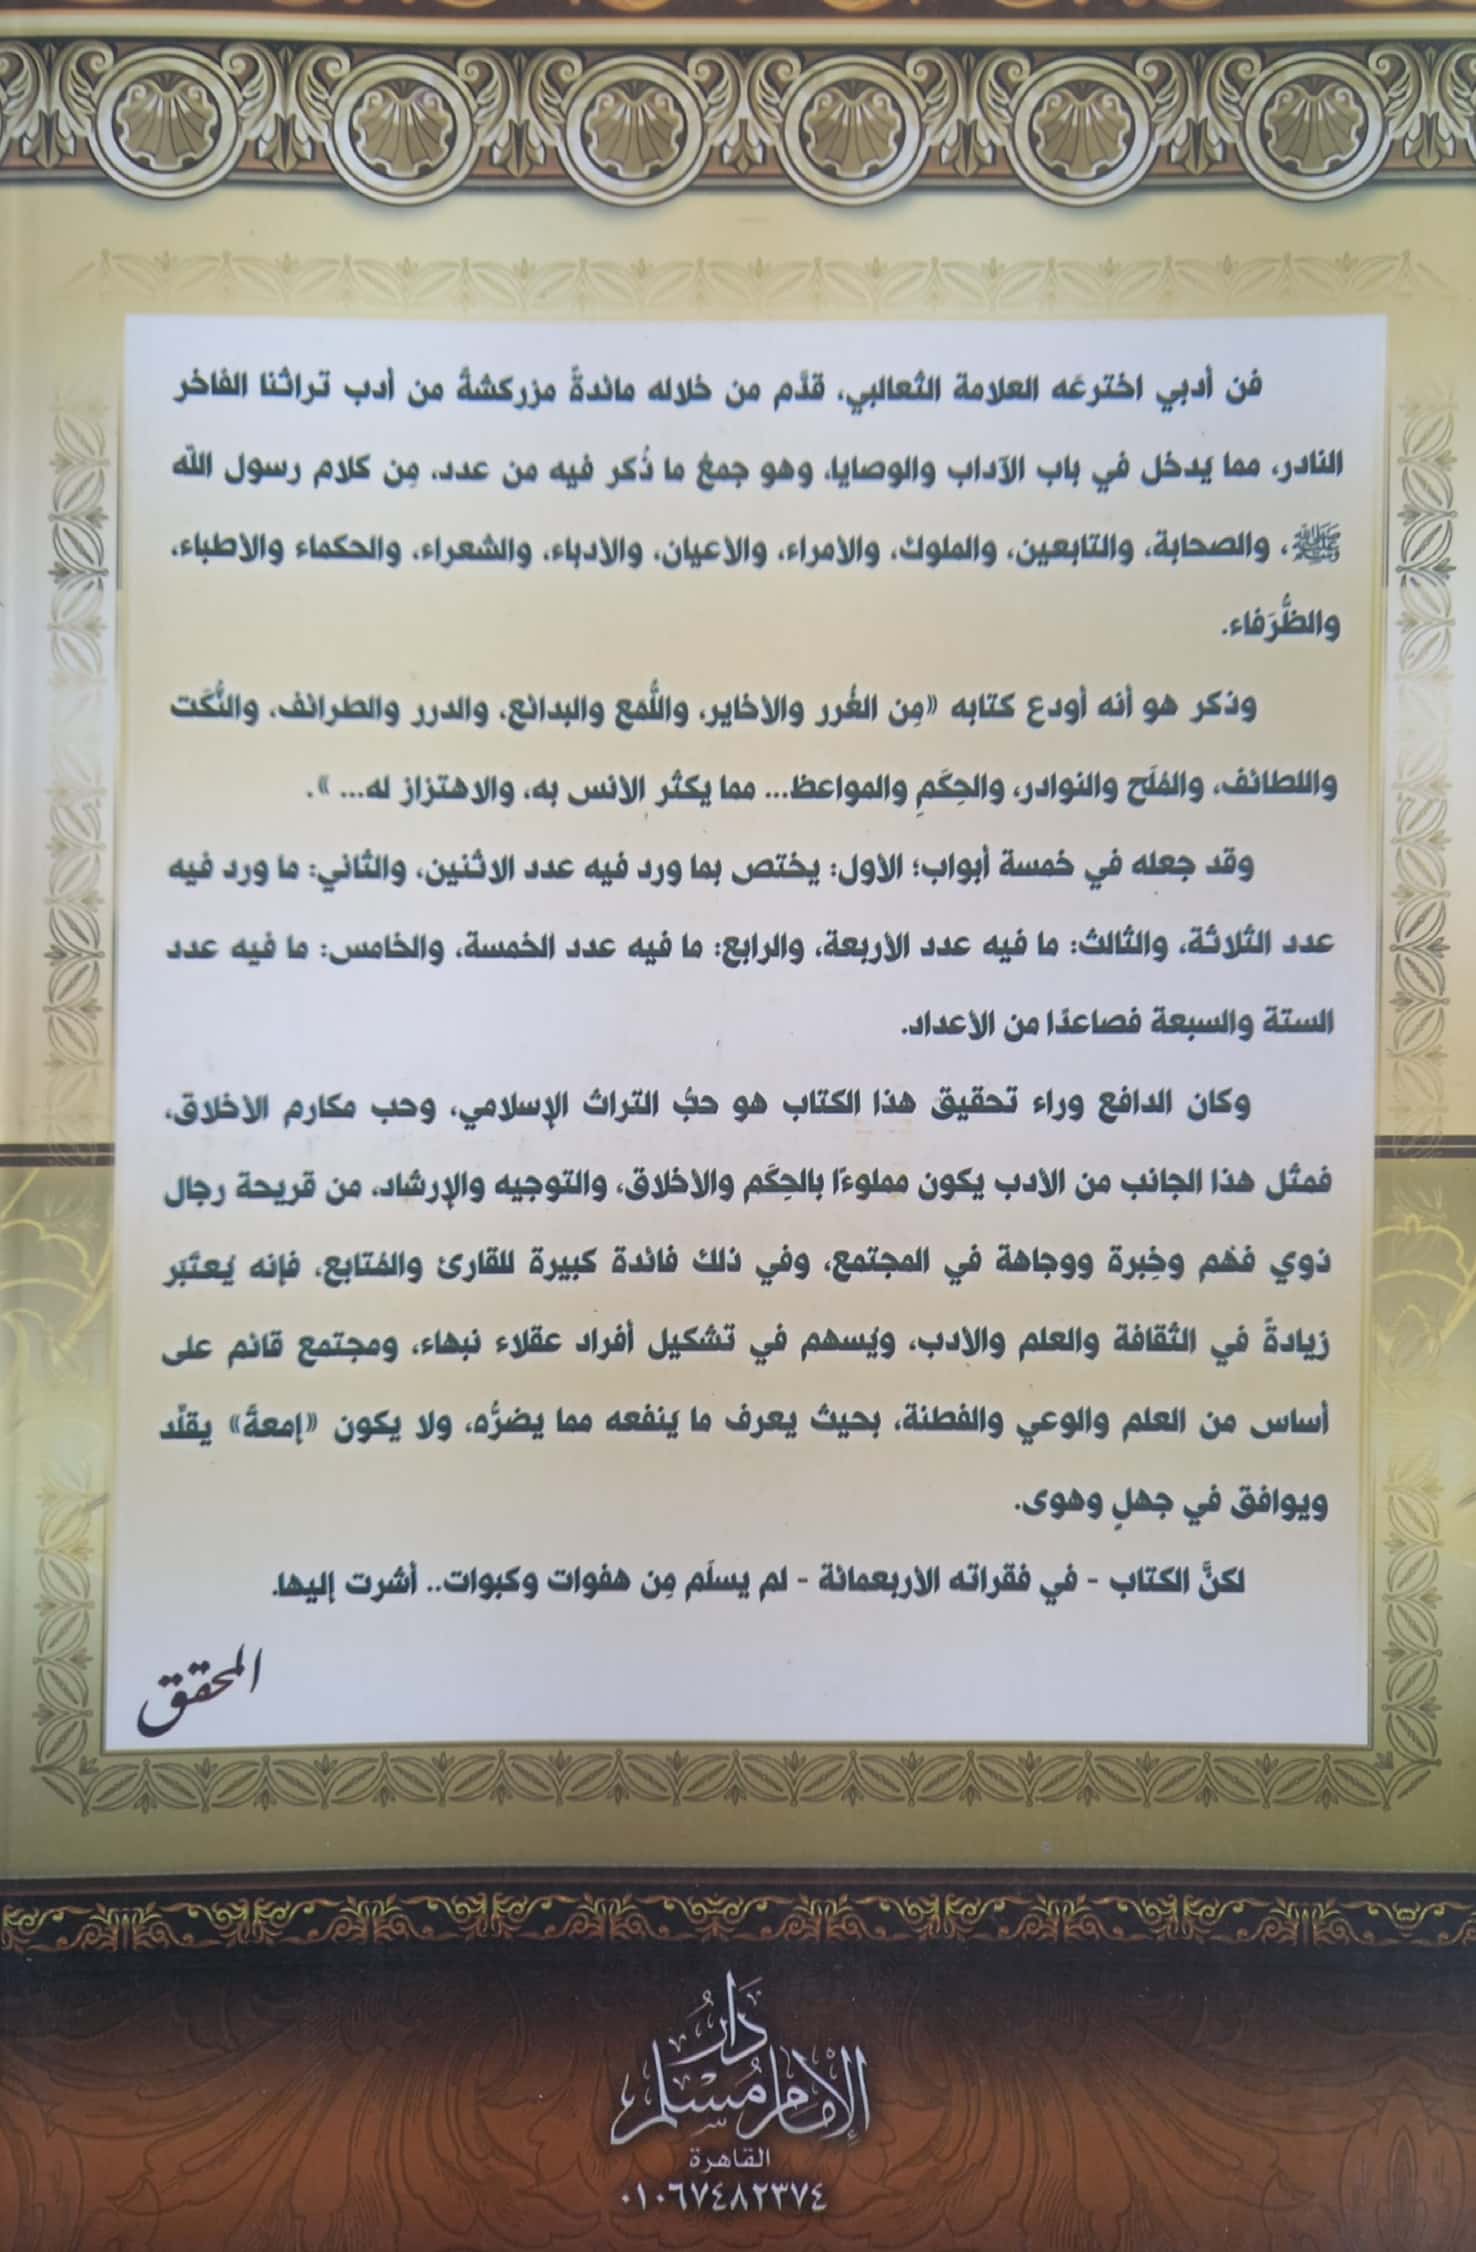 فن أدبي اخترعَه العلامة الثعالبي، قدَّم من خلاله مائدةً مزركشةً من أدب تراثنا الفاخر
النادر، مما يدخل في باب الآداب والوصايا، وهو جمعُ ما ذُكر فيه من عدد، مِن كلام رسول الله
ﷺ، والصحابة، والتابعين، والملوك، والأمراء، والأعيان، والأدباء، والشعراء، والحكماء والأطباء،
والظُّرَفاء.
وذكر هو أنه أودع كتابه «مِن الغُرر والأخاير، واللُّمَع والبدائع، والدرر والطرائف، والنُّكَت
واللطائف، والمُلَح والنوادر، والحِكَمِ والمواعظ... مما يكثر الأنس به، والاهتزاز له... ».
وقد جعله في خمسة أبواب؛ الأول: يختص بما ورد فيه عدد الاثنين، والثاني: ما ورد فيه
عدد الثلاثة، والثالث: ما فيه عدد الأربعة، والرابع: ما فيه عدد الخمسة، والخامس: ما فيه عدد
الستة والسبعة فصاعدًا من الأعداد.
وكان الدافع وراء تحقيق هذا الكتاب هو حبُّ التراث الإسلامي، وحب مكارم الأخلاق،
فمثل هذا الجانب من الأدب يكون مملوءًا بالحِكَم والأخلاق، والتوجيه والإرشاد، من قريحة رجال
ذوي فَهْم وخِبرة ووجاهة في المجتمع، وفي ذلك فائدة كبيرة للقارئ والمُتابع، فإنه يُعتَبَر
زيادةً في الثقافة والعلم والأدب، ويُسهم في تشكيل أفراد عقلاء نبهاء، ومجتمع قائم على
أساس من العلم والوعي والفطنة، بحيث يعرف ما يَنفعه مما يضرُّه، ولا يكون «إمعةً» يقلِّد
ويوافق في جهلٍ وهوى.
لكنَّ الكتاب - في فقراته الأربعمائة - لم يسلَم مِن هفوات وكبوات.. أشرت إليها.
المحقق
دَارُ
الإِمَامِ مُسْلِم
القاهرة
٠١٠٦٧٤٨٢٣٧٤